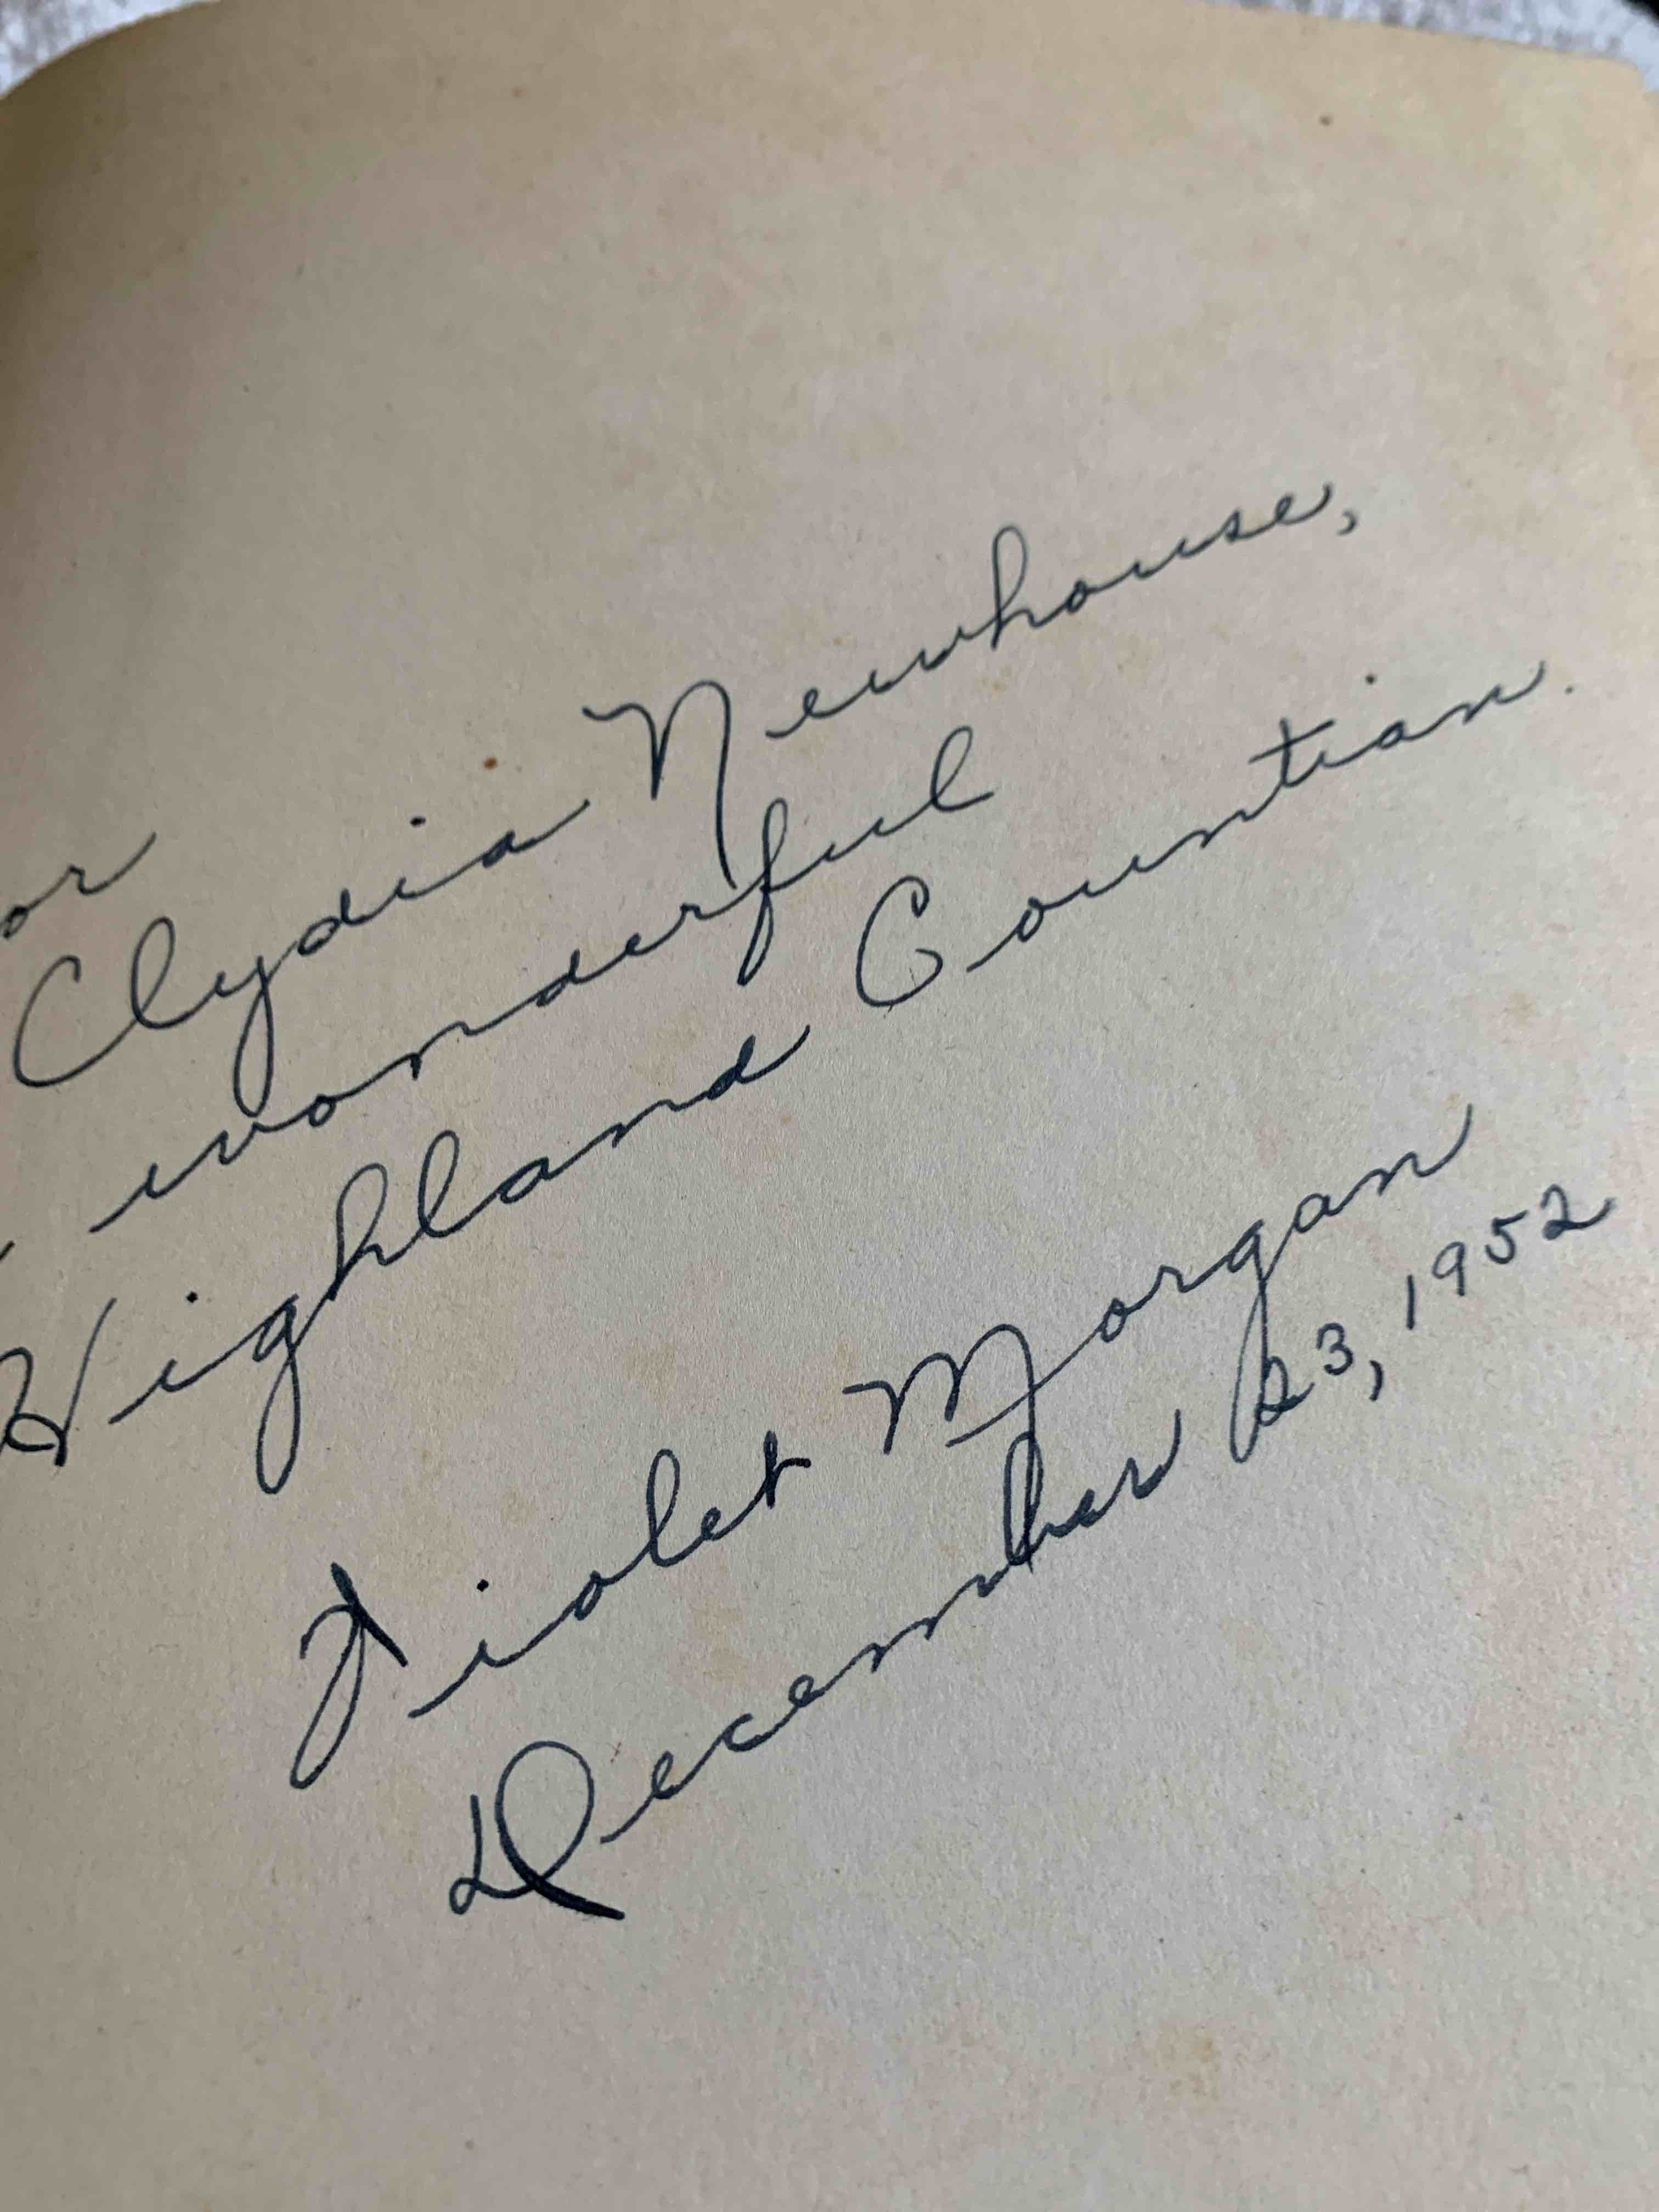 or
Clydia Newhouse,
wonderful
Highland Countian.
Violet Morgan
December 23, 1952